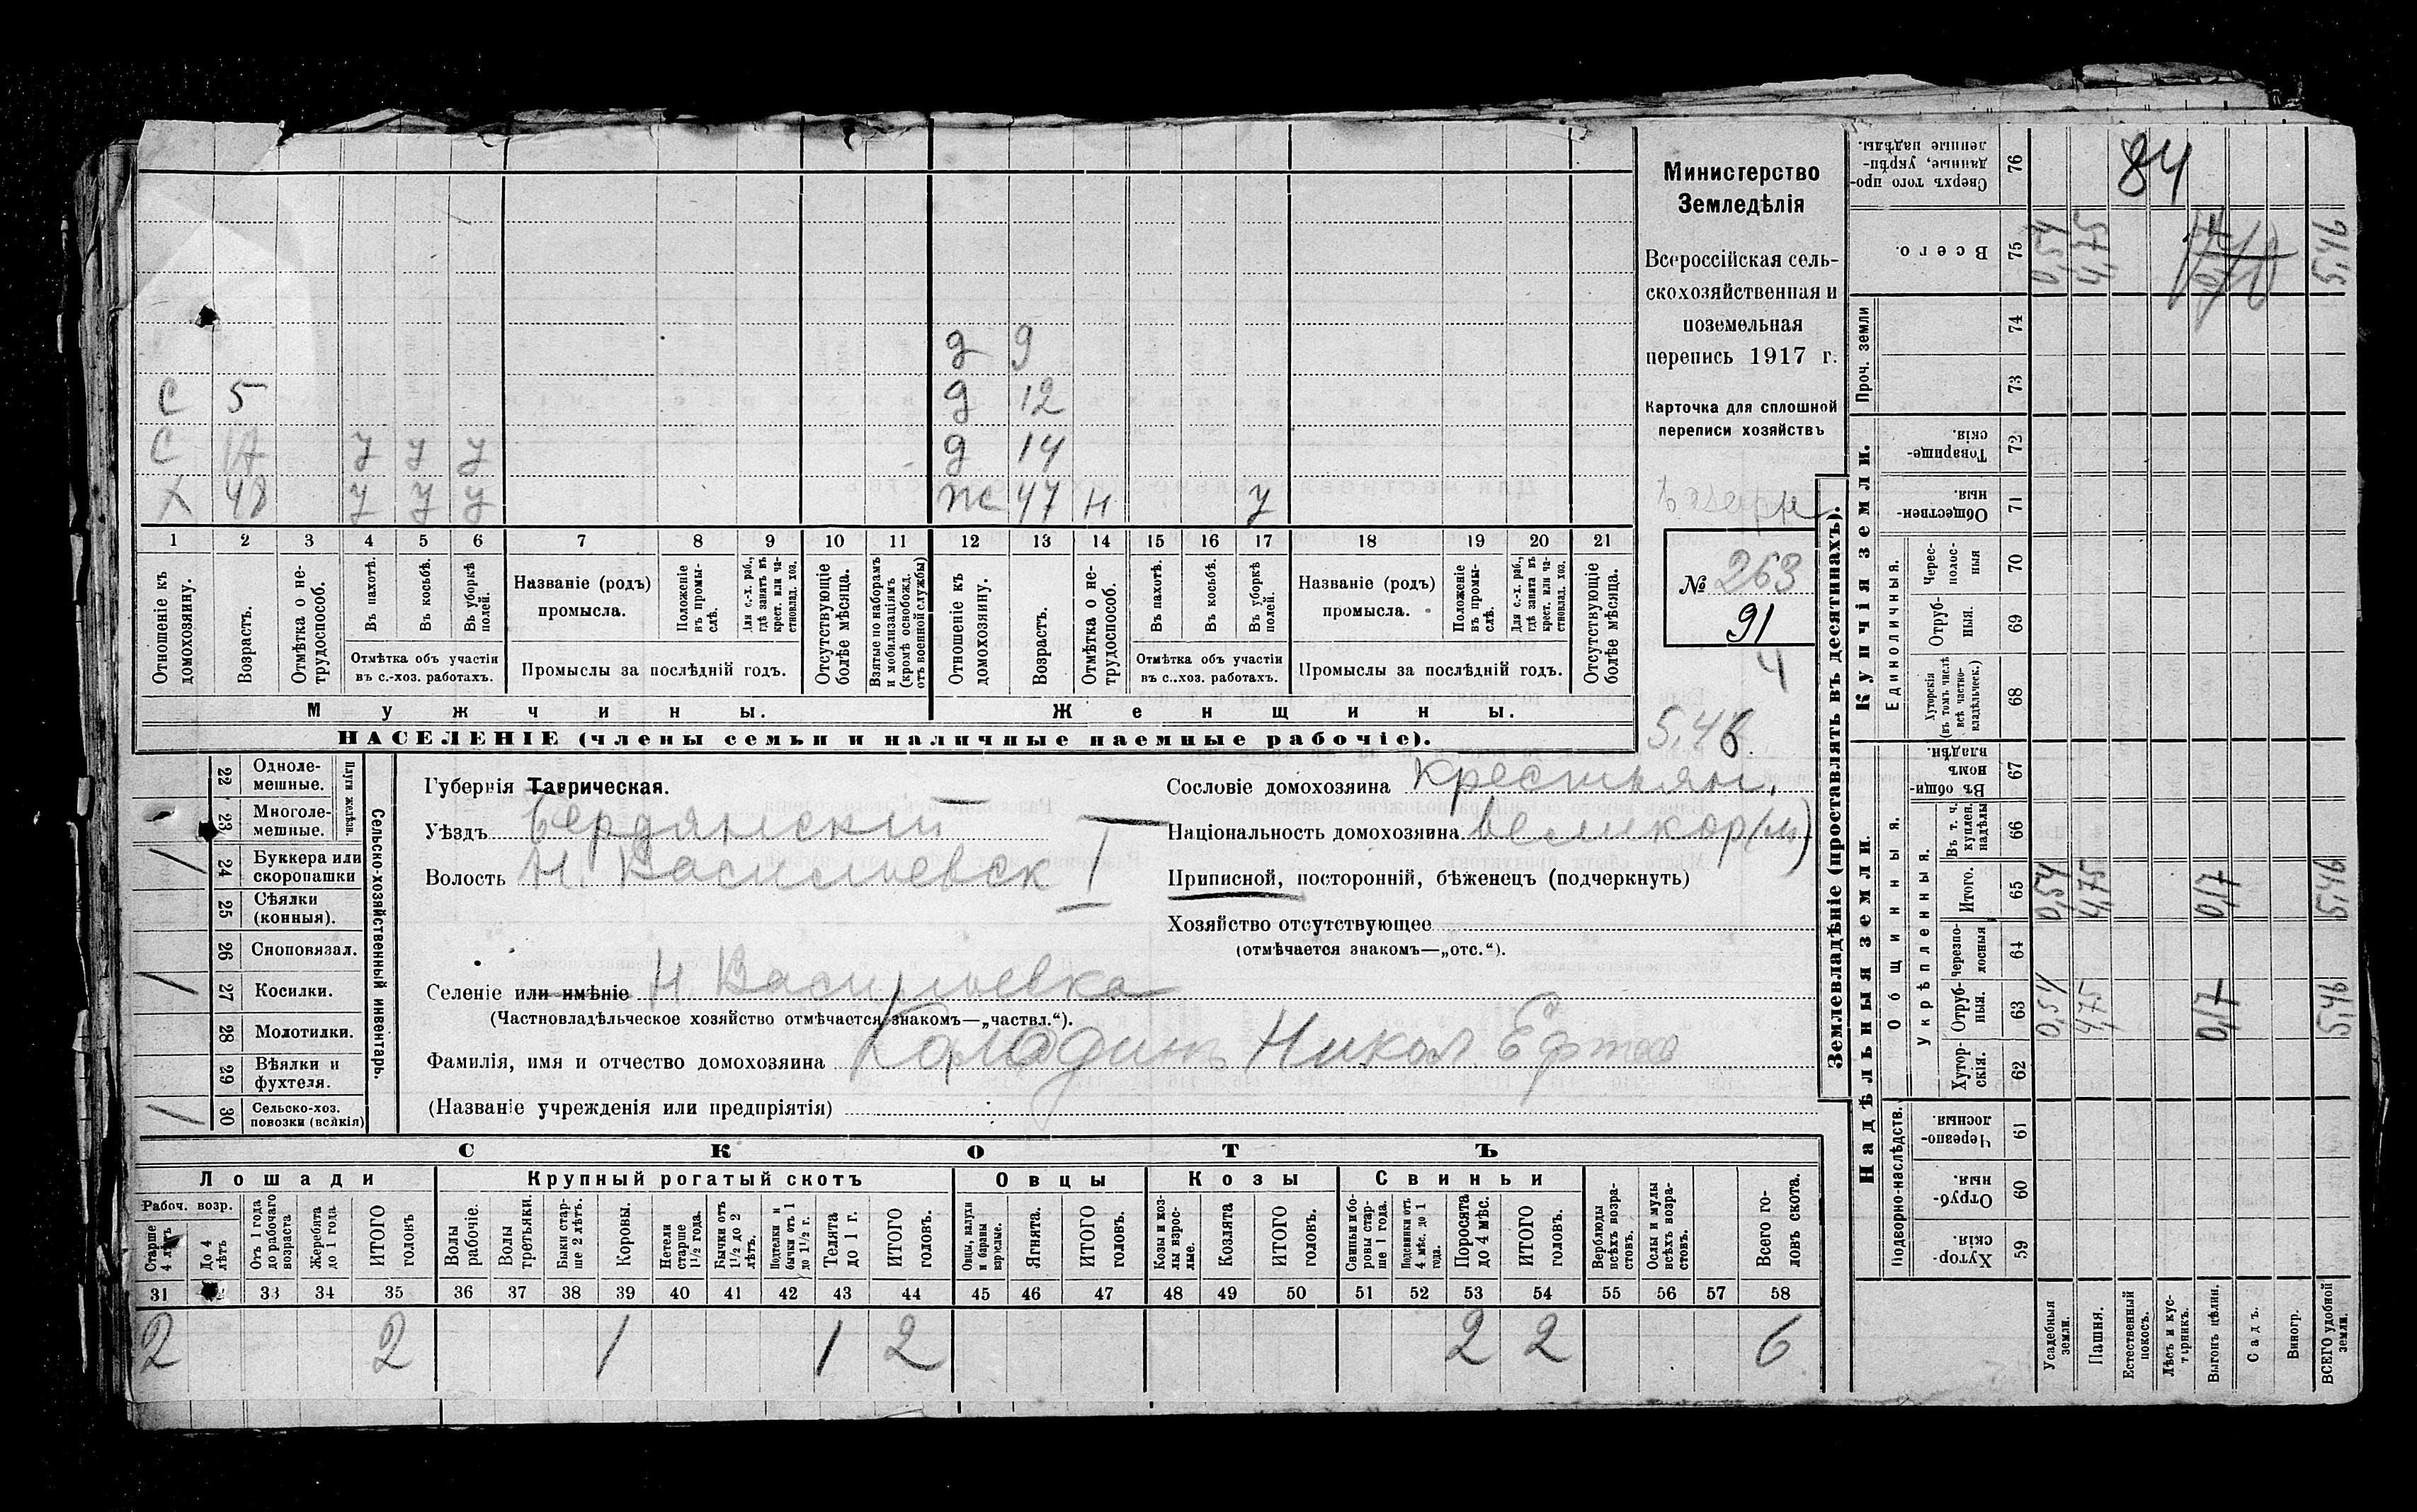 д 9
с 5 д 12
с 17 у у у д 14
х 48 у у у ж 47 н у
1 2 3 4 5 6 7 8 9 10 11 12 13 14 15 16 17 18 19 20 21
Отношеніе къ домохозяину.
Возрастъ.
Отмѣтка о не-трудоспособ.
Въ пахотѣ.
Въ косьбѣ.
Въ уборкѣ полей.
Отмѣтка объ участіи
въ с.-хоз. работахъ.
Названіе (родъ)
промысла.
Положеніе въ промы-слѣ.
Для с.-х. раб., гдѣ занятъ въ крест. или ча-стновлад. хоз.
Промыслы за послѣдній годъ.
Отсутствующіе болѣе мѣсяца.
Взятые по наборамъ и мобилизаціямъ (кромѣ освобожд. отъ военной службы)
Отношеніе къ домохозяину.
Возрастъ.
Отмѣтка о не-трудоспособ.
Въ пахотѣ.
Въ косьбѣ.
Въ уборкѣ полей.
Отмѣтка объ участіи
въ с.-хоз. работахъ.
Названіе (родъ)
промысла.
Положеніе въ промы-слѣ.
Для с.-х. раб., гдѣ занятъ въ крест. или ча-стновлад. хоз.
Промыслы за послѣдній годъ.
Отсутствующіе болѣе мѣсяца.
Мужчины.
Женщины.
НАСЕЛЕНІЕ (члены семьи и наличные наемные рабочіе).
Министерство
Земледѣлія
Всероссійская сель-
скохозяйственная и
поземельная
перепись 1917 г.
Карточка для сплошной
переписи хозяйствъ
№ 263
91
4
5,46
22 Одноле-мешные.
23 Многоле-мешные.
Плуги желѣзн.
/ 24 Буккера или скоропашки
25 Сѣялки (конныя).
26 Сноповязал.
/ 27 Косилки.
28 Молотилки.
29 Вѣялки и фухтеля.
/ 30 Сельско-хоз. повозки (всякія)
Сельско-хозяйственный инвентарь.
Губернія Таврическая.
Уѣздъ Бердянскій
Волость Н. Васильевск I
Селеніе или имѣніе Н. Васильевка
(Частновладѣльческое хозяйство отмѣчается знакомъ—„частвл.“).
Фамилія, имя и отчество домохозяина Калодинъ Никол. Ефтов
(Названіе учрежденія или предпріятія)
Сословіе домохозяина Крестьян.
Національность домохозяина великор
Приписной, посторонній, бѣженецъ (подчеркнуть)
Хозяйство отсутствующее
(отмѣчается знакомъ—„отс.“).
СКОТЪ
Лошади Крупный рогатый скотъ Овцы Козы Свиньи
Рабоч. возр.
Старше 4 лѣтъ
До 4 лѣтъ
Отъ 1 года до рабочаго возраста
Жеребята до 1 года
ИТОГО головъ
Волы рабочіе.
Волы третьяки.
Быки стар-ше 2 лѣтъ.
Коровы.
Нетели старше 1½ года.
Бычки отъ 1½ до 2 лѣтъ.
Подтелки и бычки отъ 1 до 1½ г.
Телята до 1 г.
ИТОГО головъ.
Овцы, валухи и бараны взрослые.
Ягнята.
ИТОГО головъ.
Козы и коз-лы взрос-лые.
Козлята
ИТОГО головъ.
Свиньи и бо-ровы стар-ше 1 года.
Подсвинки отъ 4 мѣс. до 1 года.
Поросята до 4 мѣс.
ИТОГО головъ.
Верблюды всѣхъ возра-стовъ.
Ослы и мулы всѣхъ возра-стовъ.
Всего го-ловъ скота.
31 33 34 35 36 37 38 39 40 41 42 43 44 45 46 47 48 49 50 51 52 53 54 55 56 57 58
2 2 1 1 2 2 2 6
Землевладѣніе (проставлять въ десятинахъ).
Купчія земли.
Надѣльныя земли.
84
Сверхъ того про-данные, укрѣп-ленные надѣлы. 76
Всего. 75 0,54 4,75 5,46
Проч. земли 74
73
Товарище-скія. 72
Обществен-ныя. 71
Единоличныя.
Черес-полос-ныя 70
Отруб-ныя. 69
Хуторскія (въ томъ числѣ всѣ частно-владѣльческ.) 68
Въ общин-номъ владѣн. 67
Общинныя.
Укрѣпленныя.
Въ т. ч. куплен. надѣлы 66
Итого. 65 0,54 4,75 0,17 5,46
Черезпо-лосныя 64
Отруб-ныя. 63 0,54 4,75 0,17 5,46
Хутор-скія. 62
Подворно-наслѣдств.
Черезпо-лосныя 61
Отруб-ныя. 60
Хутор-скія. 59
Усадебныя земли.
Пашня.
Естественный покосъ.
Лѣсъ и кус-тарникъ.
Выгонъ цѣлин.
Садъ.
Виногр.
ВСЕГО удобной земли.